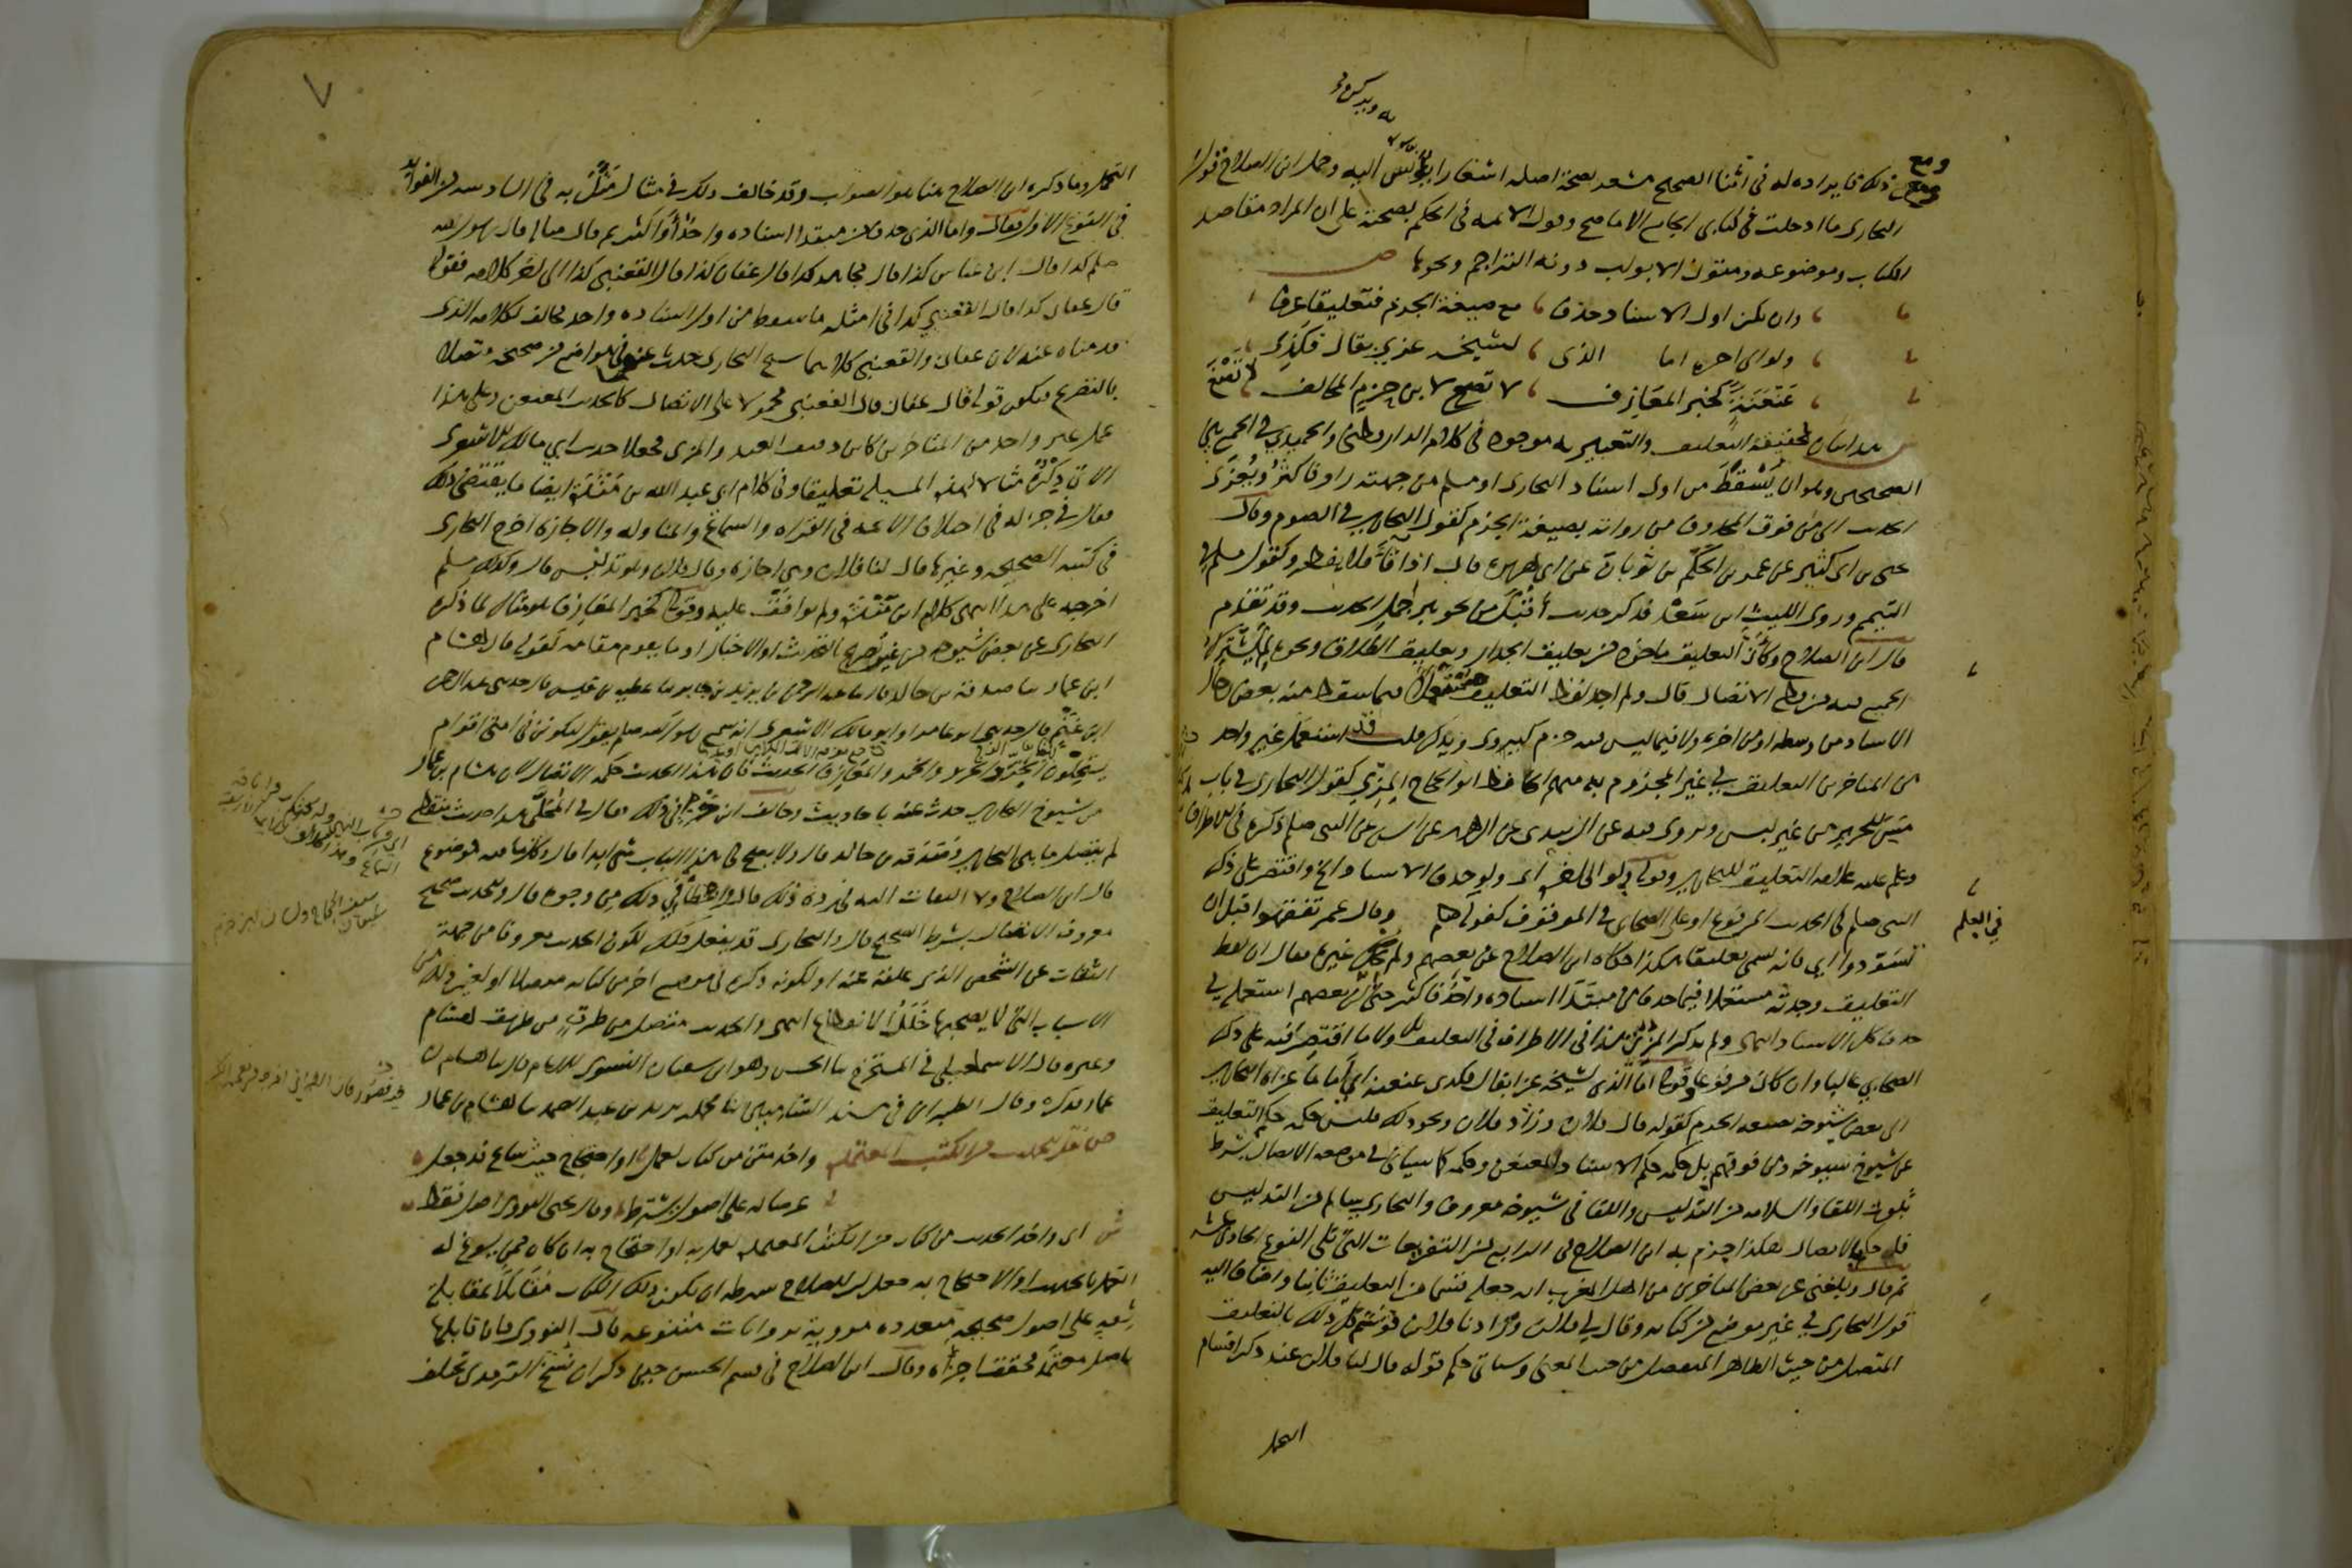 ومع
ومع ذلك فايراده له في اثنا الصحيح مشعر بصحة اصله اشعارا يؤنس اليه وحمل ابن الصلاح قول
البخاري ما ادخلت في كتابي الجامع الا ما صح وقول الائمه في الحكم بصحته على ان المراد مقاصد
الكتاب وموضوعه ومتون الابواب دونه التراجم ونحوها ص
وان يكن اول الاسناد حذف مع صيغة الجزم فتعليقا عرف
ولو الى اخره اما الذي لشيخه عزي بقال فكذي
عنعنة كخبر المعازف لا تصغ لابن حزم المخالف
ش هذا بيان لحقيقة التعليق والتعبير به موجود في كلام الدارقطني والحميدي في الجمع بين
الصحيحين وهو ان يسقط من اول اسناد البخاري او مسلم من جهته راو فاكثر ويعزى
الحديث الى من فوق المحذوف من رواته بصيغة الجزم كقول البخاري في الصوم وقال
يحيى بن ابي كثير عن عمر بن الحكم بن ثوبان عن ابي هريرة قال اذا قاء فلا يفطر وكقول مسلم في
التيمم وروى الليث ابن سعد فذكر حديث اقبل من نحو بير جمل الحديث وقد تقدم
قال ابن الصلاح وكأن التعليق ماخوذ من تعليق الجدار وتعليق الطلاق ونحوه لما يشترك
الجميع فيه من قطع الاتصال قال ولم اجد لفظ التعليق مستعملا فيما سقط منه بعض رجال
الاسناد من وسطه او من اخره ولا فيما ليس فيه جزم كيروى ويذكر قلت قد استعمل غير واحد
من المتاخرين التعليق في غير المجزوم به منهم الحافظ ابو الحجاج المزي كقول البخاري في باب
مس الحرير من غير لبس ويروى فيه عن الزبيدي عن الزهري عن انس عن النبي صلعم ذكره في الاطراف
وعلم عليه علامة التعليق للبخاري وقولي ولو الى اخره اي ولو حذف الاسناد الى اخره واقتصر على ذكر
النبي صلعم في الحديث المرفوع او على الصحابي في الموقوف كقوله في العلم وقال عمر تفقهوا قبل ان
تسودوا اي فانه يسمى تعليقا هكذا حكاه ابن الصلاح عن بعضهم ولم يحك غيره فقال ان لفظ
التعليق وجدته مستعملا فيما حذف من مبتدا اسناده واحد فاكثر حتى ان بعضهم استعمله في
حذف كل الاسناد انتهى ولم يذكر المزي هذا في الاطراف في التعليق بل ولا ما اقتصر فيه على ذكر
الصحابي غالبا وان كان مرفوعا وقوله اما الذي لشيخه عزا بقال فكذي عنعنه اي اما ما عزاه البخاري
الى بعض شيوخه بصيغه الجزم كقوله قال فلان وزاد فلان ونحو ذلك فليس حكمه حكم التعليق
عن شيوخ شيوخه ومن فوقهم بل حكمه حكم الاسناد المعنعن وحكمه كما سياتي في موضعه الاتصال بشرط
ثبوت اللقاء والسلامه من التدليس واللقا في شيوخه معروف والبخاري سالم من التدليس
فله حكم الاتصال هكذا جزم به ابن الصلاح في الرابع من التفريعات التي تلي النوع الحادي عشر
ثم قال وبلغني عن بعض المتاخرين من اهل المغرب انه جعله قسما من التعليق ثانيا واضاف اليه
قول البخاري في غير موضع من كتابه وقال لي فلان وزادنا فلان فوسم كل ذلك بالتعليق
المتصل من حيث الظاهر المنفصل من حيث المعنى وسياتي حكم قوله قال لنا فلان عند ذكر اقسام
التحمل
في العلم
٧
التحمل وما ذكره ابن الصلاح هنا هو الصواب وقد خالف ذلك في مثال مثل به في السادسه من الفوائد
في النوع الاول فقال واما الذي حذف من مبتدا اسناده واحد او اكثر ثم قال مثاله قال رسول الله
صلعم كذا قال ابن عباس كذا قال مجاهد كذا قال عفان كذا قال القعنبي كذا الى اخر كلامه فقوله
قال عفان كذا قال القعنبي كذا في امثلة ما سقط من اول اسناده واحد مخالف لكلامه الذي
قدمناه عنه لان عفان والقعنبي كلاهما شيخ البخاري حدث عنه في مواضع من صحيحه متصلا
بالتصريح فيكون قوله قال عفان قال القعنبي محمولا على الاتصال كالحديث المعنعن وعلى هذا
عمل غير واحد من المتاخرين كابن دقيق العيد والمزي فجعلا حديث ابي مالك الاشعري
الاتي ذكره مثالا لهذه المسيله تعليقا وفي كلام ابي عبد الله بن منده ايضا ما يقتضي ذلك
فقال في جزء له في اختلاف الائمه في القراه والسماع والمناوله والاجازه اخرج البخاري
في كتبه الصحيحه وغيرها قال لنا فلان وهي اجازه وقال فلان وهو تدليس قال وكذلك مسلم
اخرجه على هذا انتهى كلام ابن منده ولم يوافق عليه وقوله كخبر المعازف هو مثال لما ذكره
البخاري عن بعض شيوخه من غير تصريح بالتحديث او الاخبار او ما يقوم مقامه كقوله قال هشام
ابن عمار ثنا صدقة بن خالد قال ثنا عبد الرحمن بن يزيد بن جابر ثنا عطيه بن قيس قال حدثني عبد الرحمن
ابن غنم قال حدثني ابو عامر او ابو مالك الاشعري انه سمع رسول الله صلعم يقول ليكونن في امتي اقوام
يستحلون الحر والحرير والخمر والمعازف الحديث فان هذا الحديث حكمه الاتصال لان هشام بن عمار
من شيوخ البخاري حدث عنه باحاديث وخالف ابن حزم في ذلك وقال في المحلى هذا حديث منقطع
لم يتصل ما بين البخاري وصدقه بن خالد قال ولا يصح في هذا الباب شي ابدا قال وكل ما فيه موضوع
قال ابن الصلاح ولا التفات اليه في رده ذلك قال واخطا في ذلك من وجوه قال والحديث صحيح
معروف الاتصال بشرط الصحيح قال والبخاري قد يفعل ذلك لكون الحديث معروفا من جهة
الثقات عن الشخص الذي علقه عنه او لكونه ذكره في موضع اخر من كتابه متصلا او لغير ذلك من
الاسباب التي لا يصحبها خلل الانقطاع انتهى والحديث متصل من طرق من طريق هشام
وغيره قال الاسمعيلي في المستخرج ثنا الحسن وهو ابن سفيان النسوي الامام قال ثنا هشام بن
عمار فذكره وقال الطبراني في مسند الشاميين ثنا محمد بن يزيد بن عبد الصمد ثنا هشام بن عمار
ص نقل الحديث من الكتب المعتمده واخذ متن من كتاب لعمل او احتجاج حيث ساغ قد جعل
عرضا له على اصول يشترط وقال يحيى النووي اصل فقط
ش اي واخذ الحديث من كتاب من الكتب المعتمده لعمل به او احتجاج به ان كان ممن يسوغ له
العمل بالحديث او الاحتجاج به جعل ابن الصلاح شرطه ان يكون ذلك الكتاب مقابلا بمقابلة
ثقه على اصول صحيحه متعدده مرويه بروايات متنوعه قال النووي فان قابلها
باصل معتمد محقق اجزاه وقال ابن الصلاح في قسم الحسن حين ذكر ان نسخ الترمذي تختلف